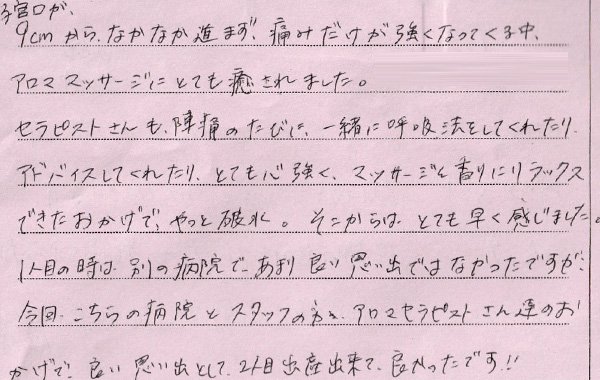 子宮口が、
9cmから、なかなか進まず、痛みだけが強くなってく中、
アロママッサージにとても癒されました。
セラピストさんも、陣痛のたびに、一緒に呼吸法をしてくれたり、
アドバイスしてくれたり、とても心強く、マッサージと香りにリラックス
できたおかげで、やっと破水。そこからは、とても早く感じました。
1人目の時は、別の病院で、あまり良い思い出ではなかったですが、
今回、こちらの病院とスタッフの方々、アロマセラピストさん達のお
かげで、良い思い出として、2人目出産出来て、良かったです!!